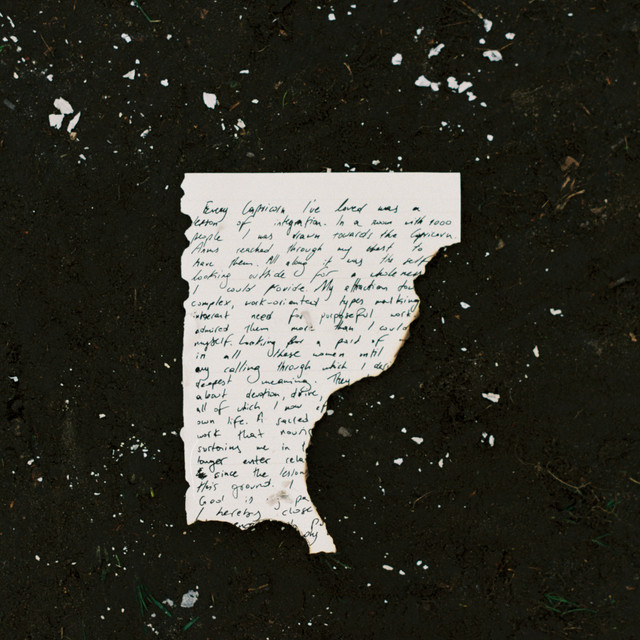 Every Capricorn I've loved was a
lesson of integration. In a room with 1000
people I was drawn towards the Capricorn
Arms reached through my chest to
have them. All along it was the
looking outside for a wholeness
I could provide. My attraction to
complex, work-oriented types
inherent need for purposeful work
admired them more than I could
myself. Looking for a part of
in all these women until
my calling through which I
deepest meaning. They
about devotion, drive,
all of which I now
own life. A sacred
work that
sustaining me in
longer enter
since the lesson
this ground.
God is
I hereby close